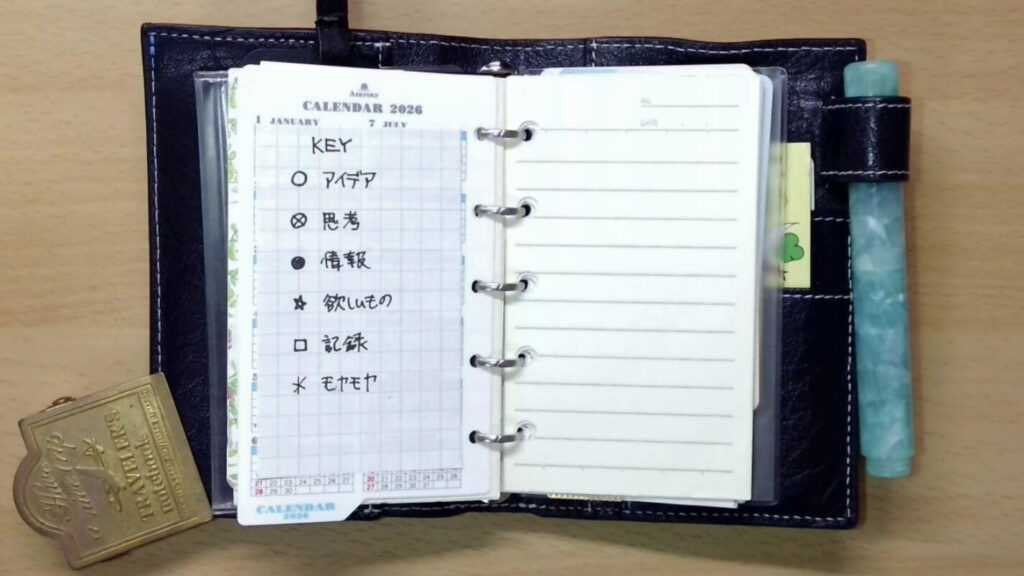 ASHFORD
CALENDAR 2026
1 JANUARY 7 JULY
KEY
○ アイデア
⊗ 思考
● 情報
☆ 欲しいもの
□ 記録
＊ モヤモヤ
6
21 22 23 24 25 26 27
28 29 30
20 21 22 23 24 25 26
27 28 29 30 31
CALENDAR
2026
No.
DATE
TRAVELER'S
notebook